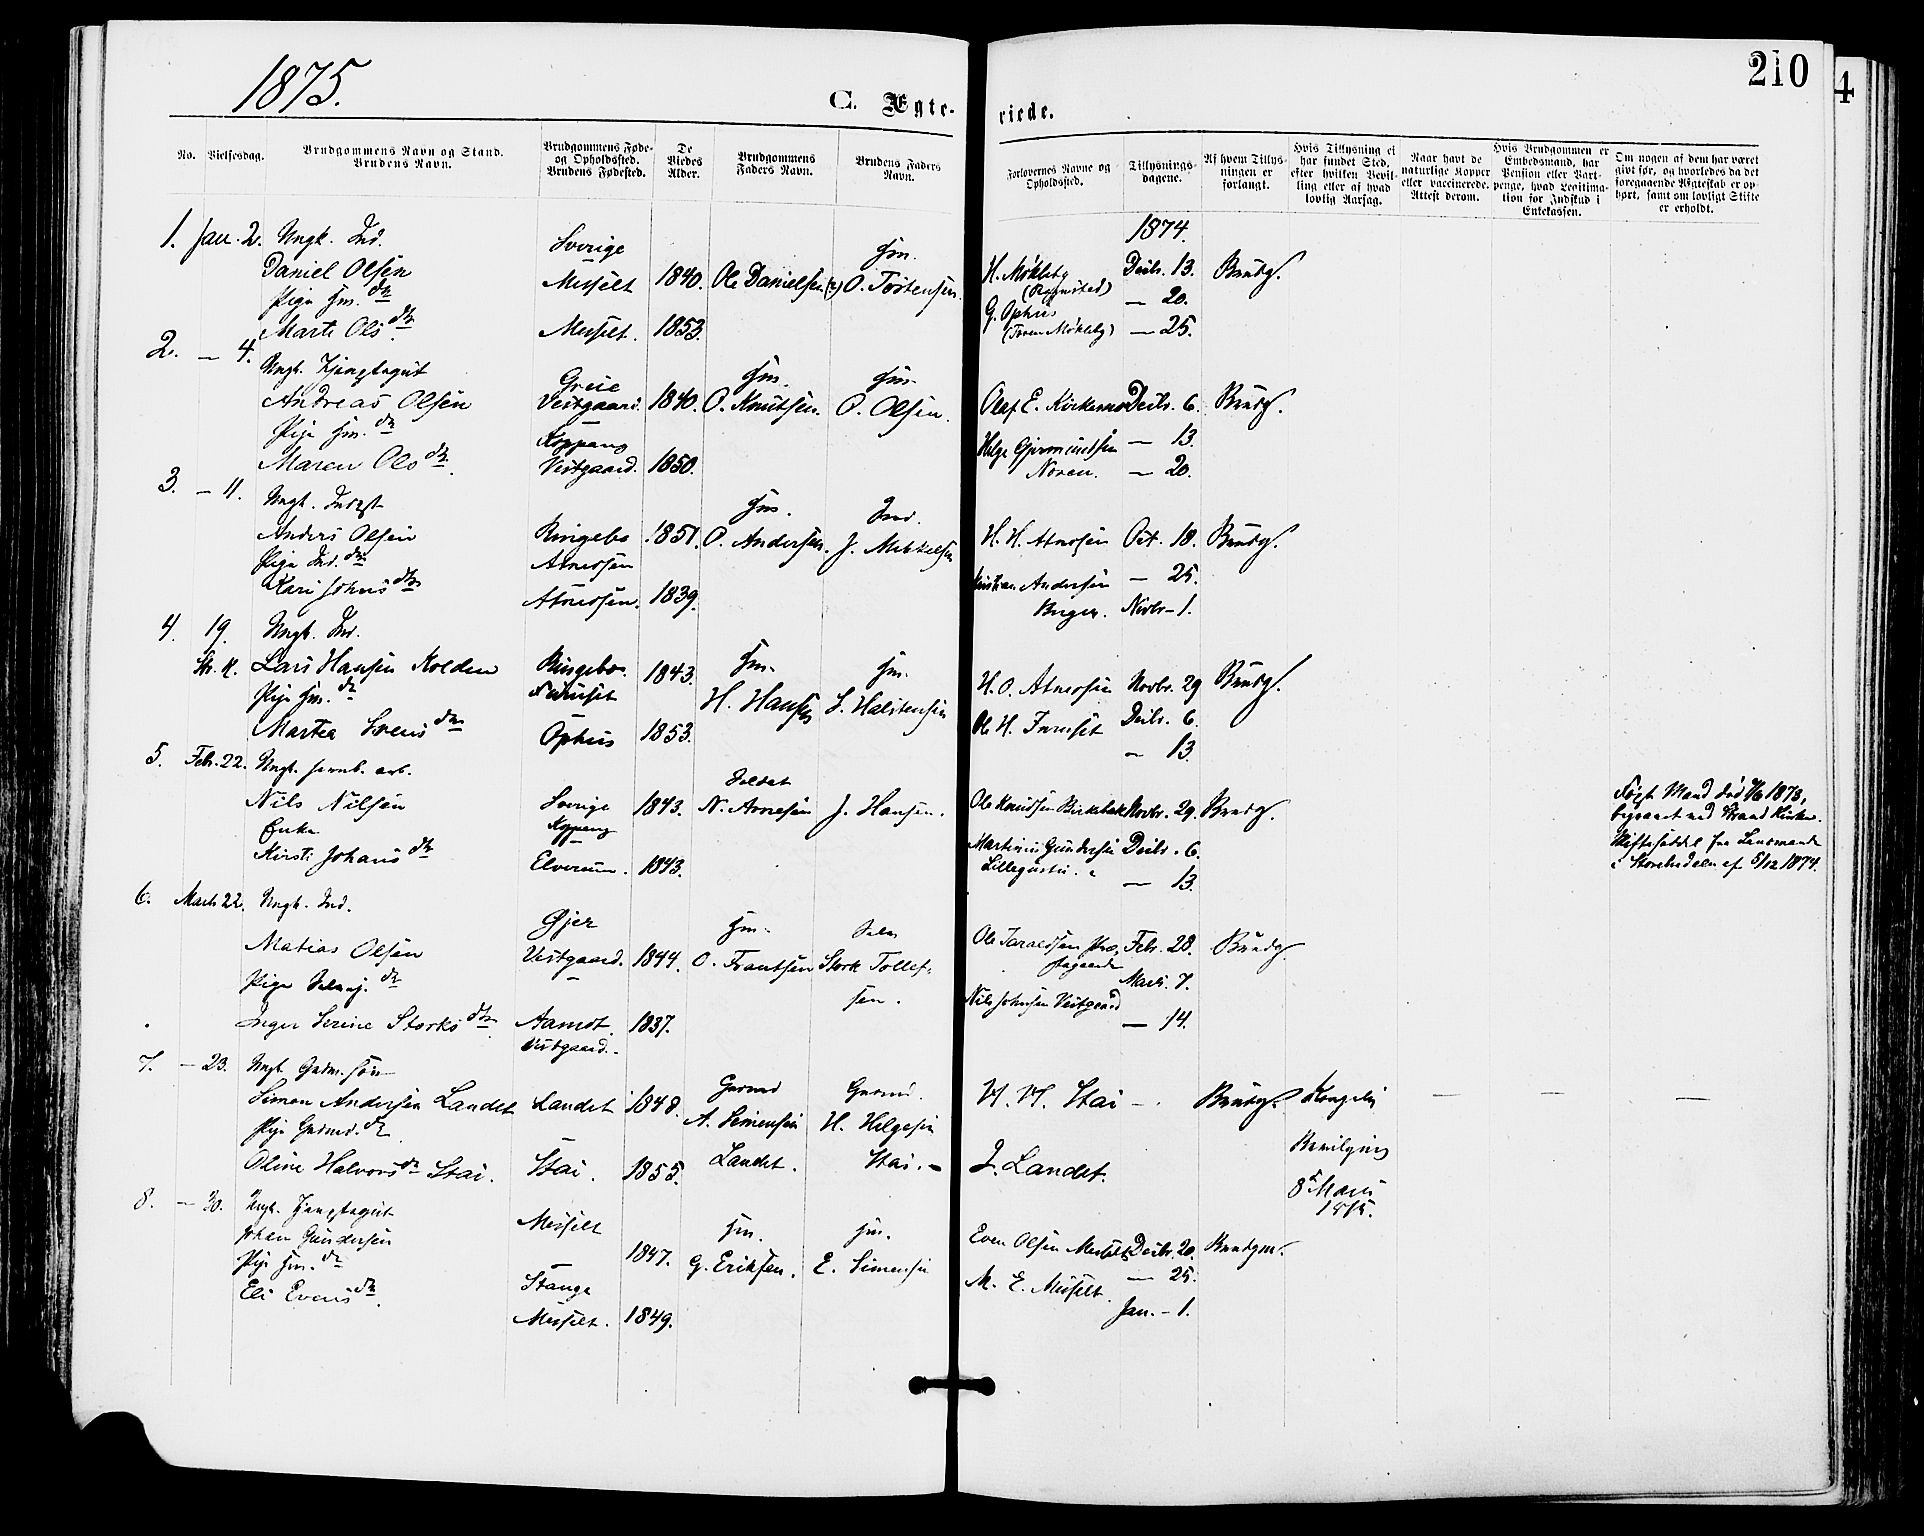 1875.
210
4
C. Ægte-
viede.
No.
Vielsesdag.
Brudgommens Navn og Stand.
Brudens Navn.
Brudgommens Føde-
og Opholdssted.
Brudens Fødested.
De
Viedes
Alder.
Brudgommens
Faders Navn.
Brudens Faders
Navn.
Forlovernes Navne og
Opholdssted.
Tillysnings-
dagene.
Af hvem Tillys-
ningen er
forlangt.
Hvis Tillysning ei
har fundet Sted,
efter hvilken Bevil-
ling eller af hvad
lovlig Aarsag.
Naar havt de
naturlige Kopper
eller vaccinerede.
Attest derom.
Hvis Brudgommen er
Embedsmand, har
Pension eller Vart-
penge, hvad Legitima-
tion for Indskud i
Enkekassen.
Om nogen af dem har været
givt før, og hvorledes da det
foregaaende Ægteskab er op-
hørt, samt om lovligt Skifte
er erholdt.
1. Jan. 2. Ungk. Ind.
Daniel Olsen
Pige Hm. dtr
Marte Ols dtr.
Sverige
Messelt 1840.
Messelt. 1853.
Ole Danielsen (?)
Hm.
O. Tostensen.
H. Møkleby
G. Ophus
(Toren Møkleby)
1874.
Decbr. 13.
— 20.
— 25.
Brudg.
2. — 4. Ungk. Tjenestegut
Andreas Olsen
Pige Hm. dtr
Maren Ols dtr.
Greie
Vestgaard. 1840.
Koppang
Vestgaard. 1850.
Hm.
O. Knutsen.
Hm.
O. Olsen.
Olaf E. Kirkemo
Helge Gjermundsen
Noren.
Decbr. 6.
— 13.
— 20.
Brudg.
3. — 11. Ungk. Inderst
Anders Olsen
Pige Ind. dtr
Kari Johns dtr
Ringebo 1851.
Atneosen
Atneosen. 1839.
Hm.
O. Andersen.
Ind.
J. Mikkelsen
H. H. Atneosen
Kristian Andersen
Oct. 18.
— 25.
Novbr – 1.
Brudg.
4. 19. Ungk. Ind.
Str. K. Lars Hansen Kolden
Pige Hm. dtr
Martea Svens dtr
Ringebo. 1843.
Furuset
Ophus 1853.
Hm.
H. Hansen
Hm.
S. Halstensen
H. O. Atneosen
Ole H. Furuset
Novbr. 29
Decbr. 6.
— 13.
Brudg.
5. Febr. 22. Ungk. Jernb. arb.
Nils Nilsen
Enke
Kirsti Johans dtr
Sverige 1843.
Koppang
Elverum. 1843.
Soldat
N. Arnesen
J. Hansen.
Ole Knudsen Birkebak
Martinius Gundersen
Novbr. 29.
Decbr. 6.
— 13.
Brudg.
Første Mand død 1873,
begravet ved Strand Kirke.
Skiftesæddel fra Lensmanden
i Storelvedalen af 5/12 1874.
6. Marts 22. Ungk. Ind.
Matias Olsen
Pige Selvej. dtr
Inger Serine Storks dtr.
Øjer
Vestgaard. 1844.
Aamot. 1837.
Vestgaard. –
Hm.
O. Frantsen
Selv
Stork Tollef-
sen.
Ole Taraldsen
Nils Johnsen Vestgaard
Febr. 28.
Marts. 7.
— 14.
Brudg.
7. — 23. Ungk. Gaardm. søn
Simen Andersen Landet
Pige Gaardmd. dtr.
Oline Halvors dtr Stai.
Landet 1848.
Stai. 1855.
Gaardmd
A. Simensen
Landet.
Gaardmd.
H. Helgesen
Stai. –
H. H. Stai –
J. Landet.
Brudg.
Kongelig
Bevilgning
8 Marts
1875.
— — —
8. — 30. Ungk. Tjenestegut
Johan Gundersen
Pige Hm. dtr
Eli Evens dtr.
Messelt
1847.
Stange
Messelt. 1849.
Hm.
G. Eriksen.
Hm.
E. Simensen
Even Olsen Messelt
M. E. Messelt.
Decbr. 20.
— 25.
Jan. – 1.
Brudgm.